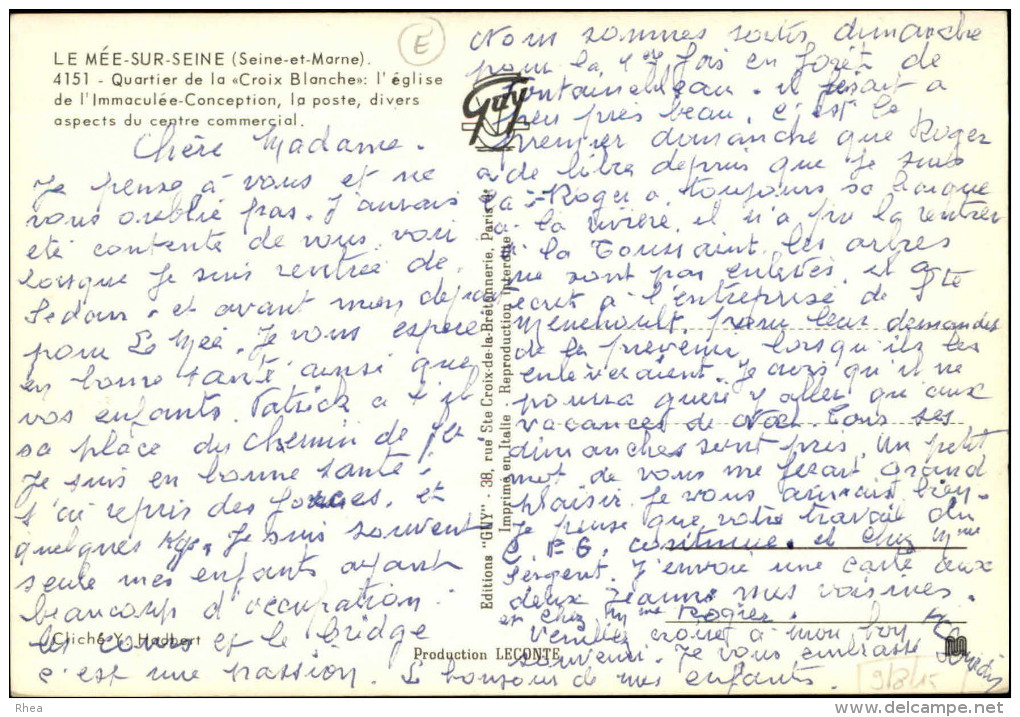 LE MÉE-SUR-SEINE (Seine-et-Marne).
4151 - Quartier de la «Croix Blanche»: l'église
de l'Immaculée-Conception, la poste, divers
aspects du centre commercial.
E
Guy
Chère Madame.
Je pense à vous et ne
vous oublie pas. J'aurais
été contente de vous voir
lorsque je suis rentrée de
Sedan. et avant mon départ
pour Le Mée. Je vous espère
en bonne santé ainsi que
vos enfants. Patrick a t'il
sa place du chemin de fer
Je suis en bonne santé.
J'ai repris des forces, et
quelques kgs. Je suis souvent
seule mes enfants ayant
beaucoup d'occupation.
les et le bridge
c'est une passion. Le bonjour de mes enfants.
Nous sommes sortis dimanche
pour la 1ere fois en forêt de
Fontainebleau. il faisait a
peu près beau, c'est le
premier dimanche que Roger
a de libre depuis que je suis
là. Roger a toujours sa barque
à la rivière, il n'a pu la rentrer
à la Toussaint. les arbres
ne sont pas enlevés. et a
écrit à l'entreprise de Ste
Menehoult, pour leur demander
de la prevenir lorsqu'ils les
enlèveraient. Je crois qu'il ne
pourra guère y aller qu'aux
vacances de Noël. Tous ses
dimanches sont pris. Un petit
mot de vous me ferait grand
plaisir. Je vous aimais bien.
Je pense que votre travail du
C.E.G. continue. et chez Mme
Sergent. J'envoie une carte aux
deux Jeanne mes voisines.
et chez Mme Rogier.
Veuillez croire à mon bon
souvenir. Je vous embrasse
Editions "GUY" - 38, rue Ste Croix-de-la-Bretonnerie, Paris 4e
Imprimé en Italie - Reproduction interdite
Cliché Y. Hautbert
Production LECONTE
Rhea
www.delcampe.net